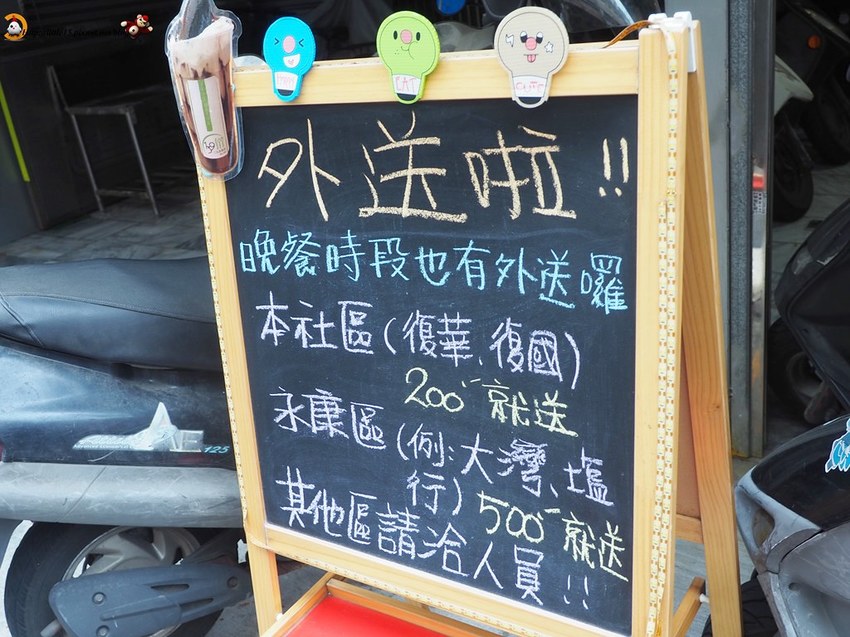 外送啦!!
晚餐時段也有外送囉
本社區(復華、復國)
200元就送
永康區(例:大灣、塩
行)500元就送
其他區請洽人員!!
125